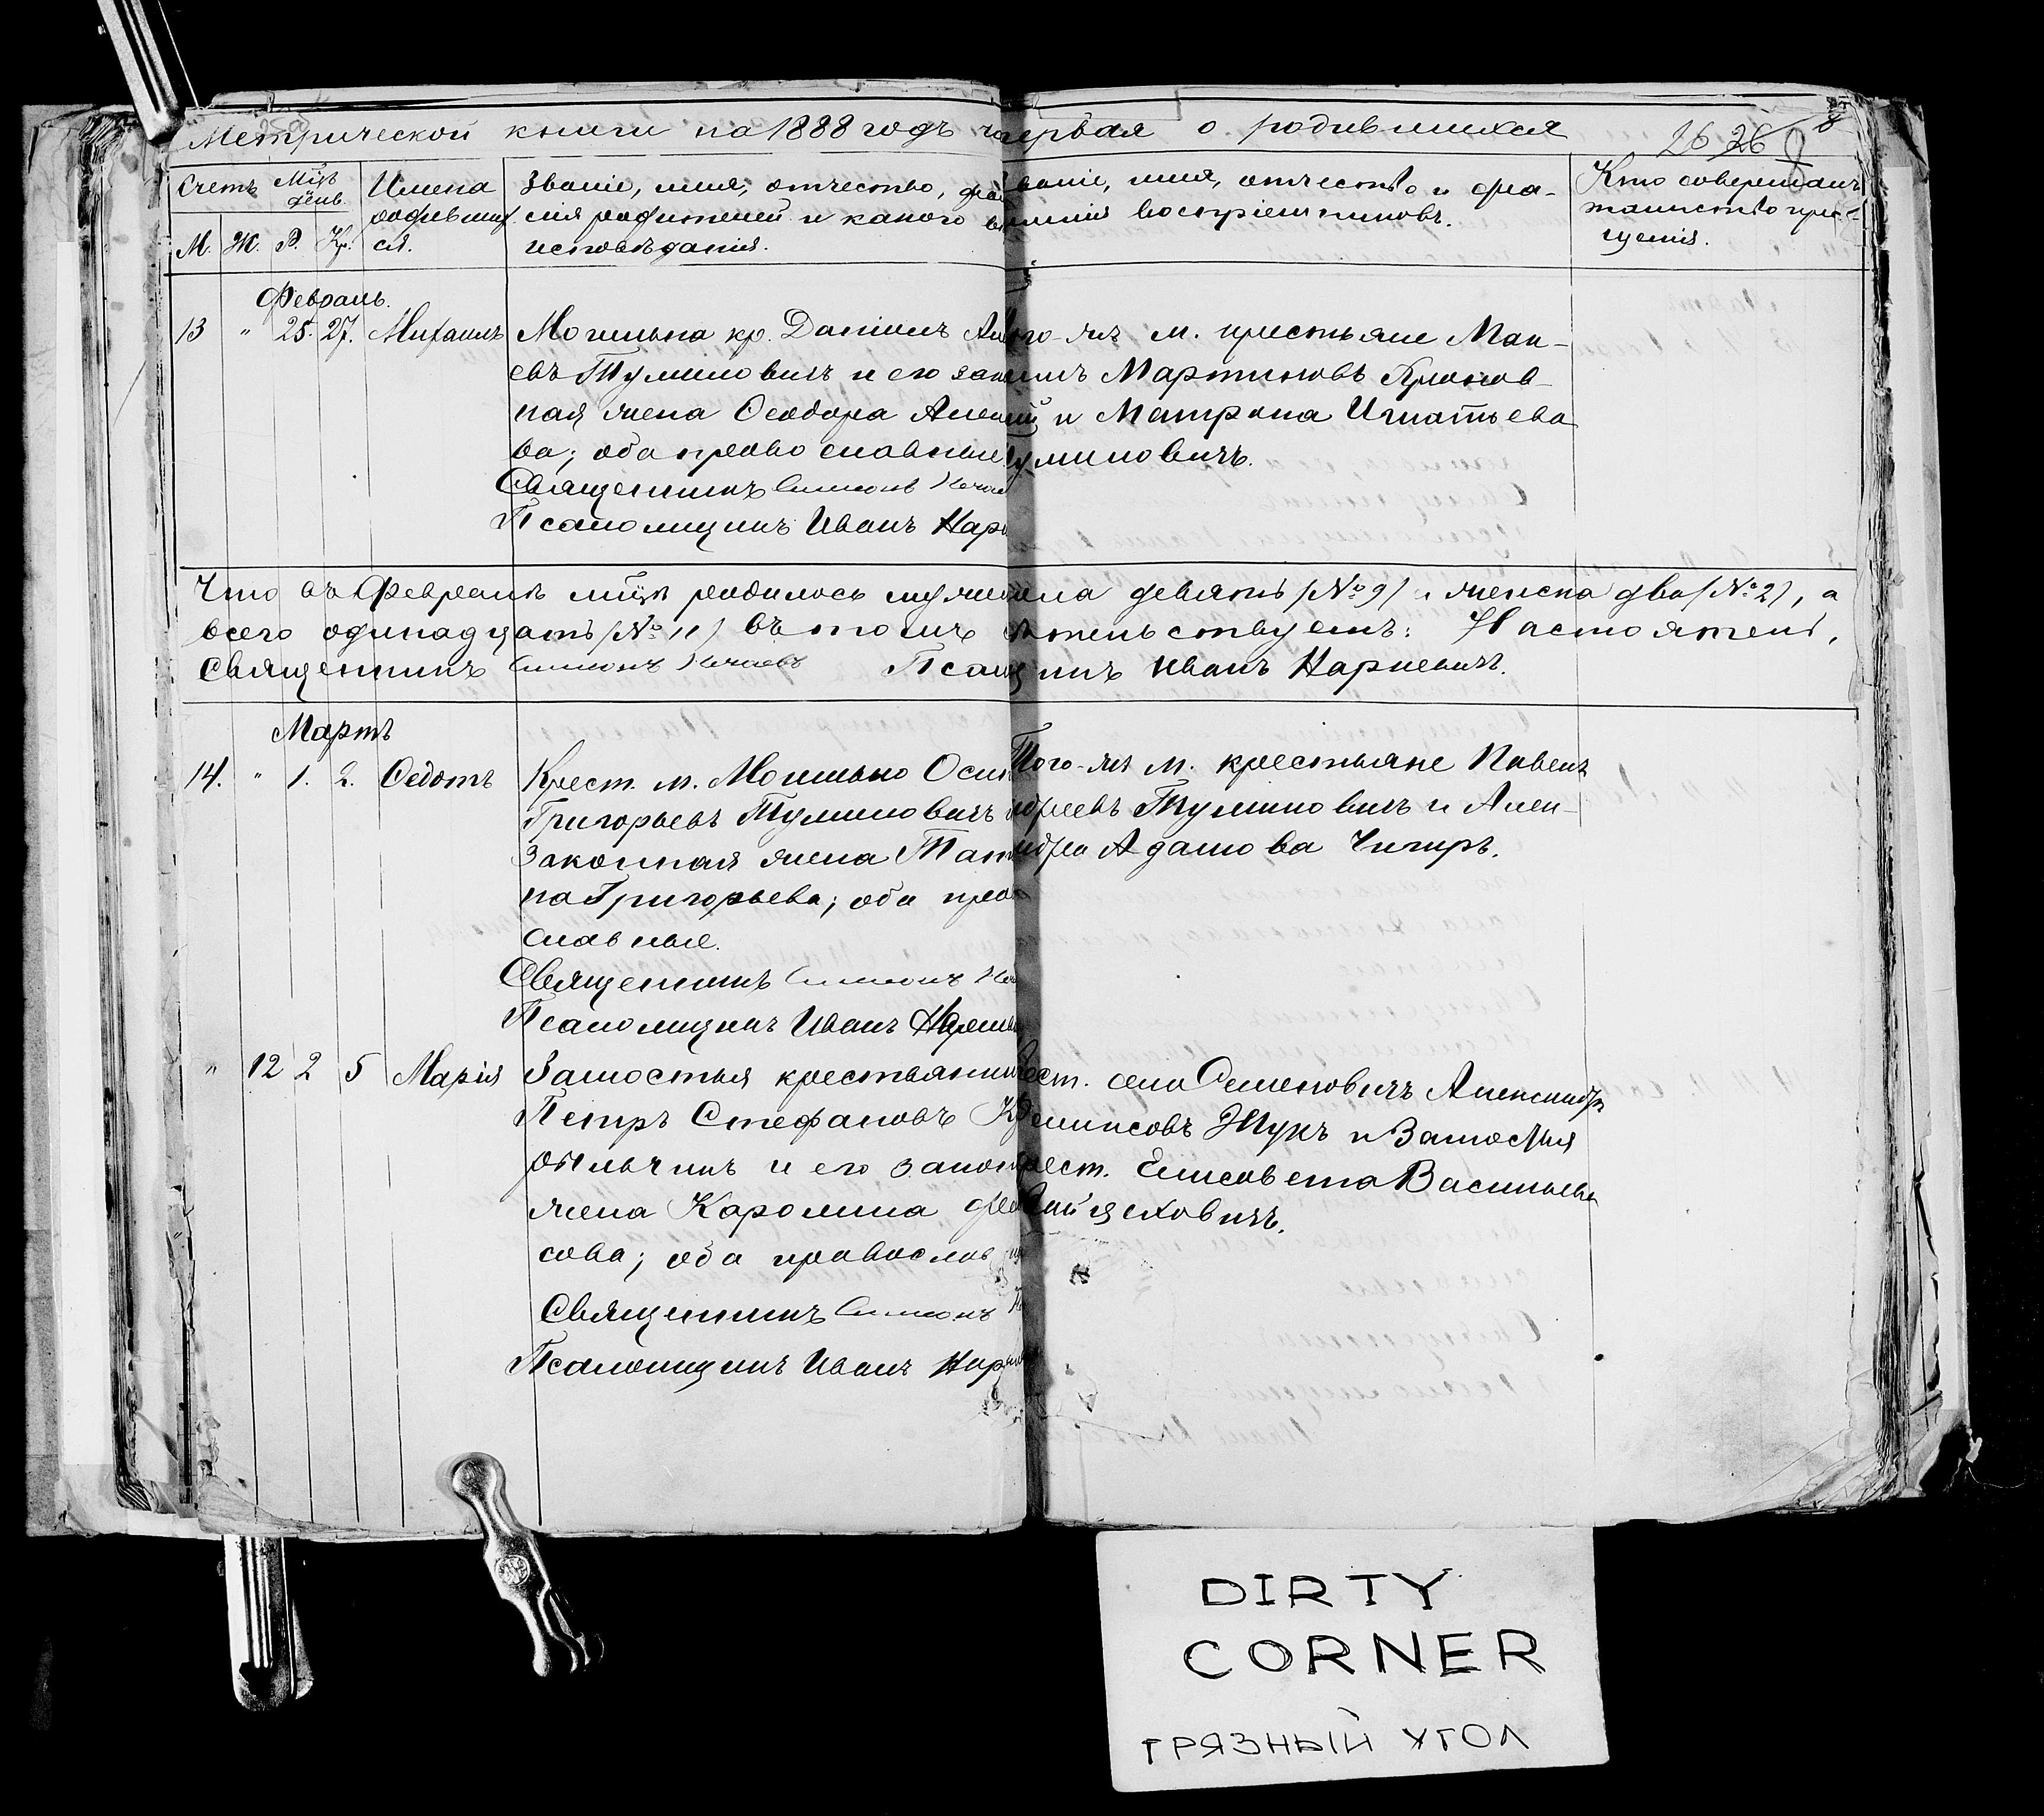 Метрической книги на 1888 годъ часть первая о родившихся
26 26 8
Счетъ
Мѣць день
Имена родившихся.
Званіе, имя, отчество,
лія родителей и какого
исповѣданія.
Званіе, имя, отчество и фа-
милія воспріемниковъ.
Кто совершалъ
таинство кре-
щенія.
М. Ж. Р. Кр.
Февраль.
13 " 25. 27. Михаилъ
Могильна кр. Даніилъ
евъ Тумиловичъ и его
ная жена Ѳеодора
ва; оба православные
Священникъ Симеонъ
Псаломщикъ Иванъ
того-же м. крестьяне Мак-
симъ Мартиновъ
и Матрона Игнатьева
Тумиловичъ.
Что въ Февралѣ мѣцѣ родилось мужеска девять (№ 9) и женска два (№ 2), а
всего одинадцать (№ 11) въ томъ свидѣтельствуемъ: Настоятель,
Священникъ Симеонъ Нечаевъ Псаломщикъ Иванъ Наркевичъ.
Мартъ
14. " 1. 2. Ѳедотъ
Крест. м. Могильно
Григорьевъ Тумиловичъ и
Законная жена
на Григорьева; оба право-
славные.
Священникъ Симеонъ
Псаломщикъ Иванъ
Того-же м. крестьяне Павелъ
Андреевъ Тумиловичъ и Алек-
сандра Адамова Чигиръ.
" 12 2 5 Марія
Замостья крестьянинъ
Петръ Стефановъ
и его законная
жена Каролина
сова; оба православные
Священникъ Симеонъ
Псаломщикъ Иванъ
Крест. села Семеновичъ Александръ
Денисовъ Жукъ и Замостья
крест. Елисавета Васильева
Войцеховичъ.
DIRTY
CORNER
ГРЯЗНЫЙ УГОЛ